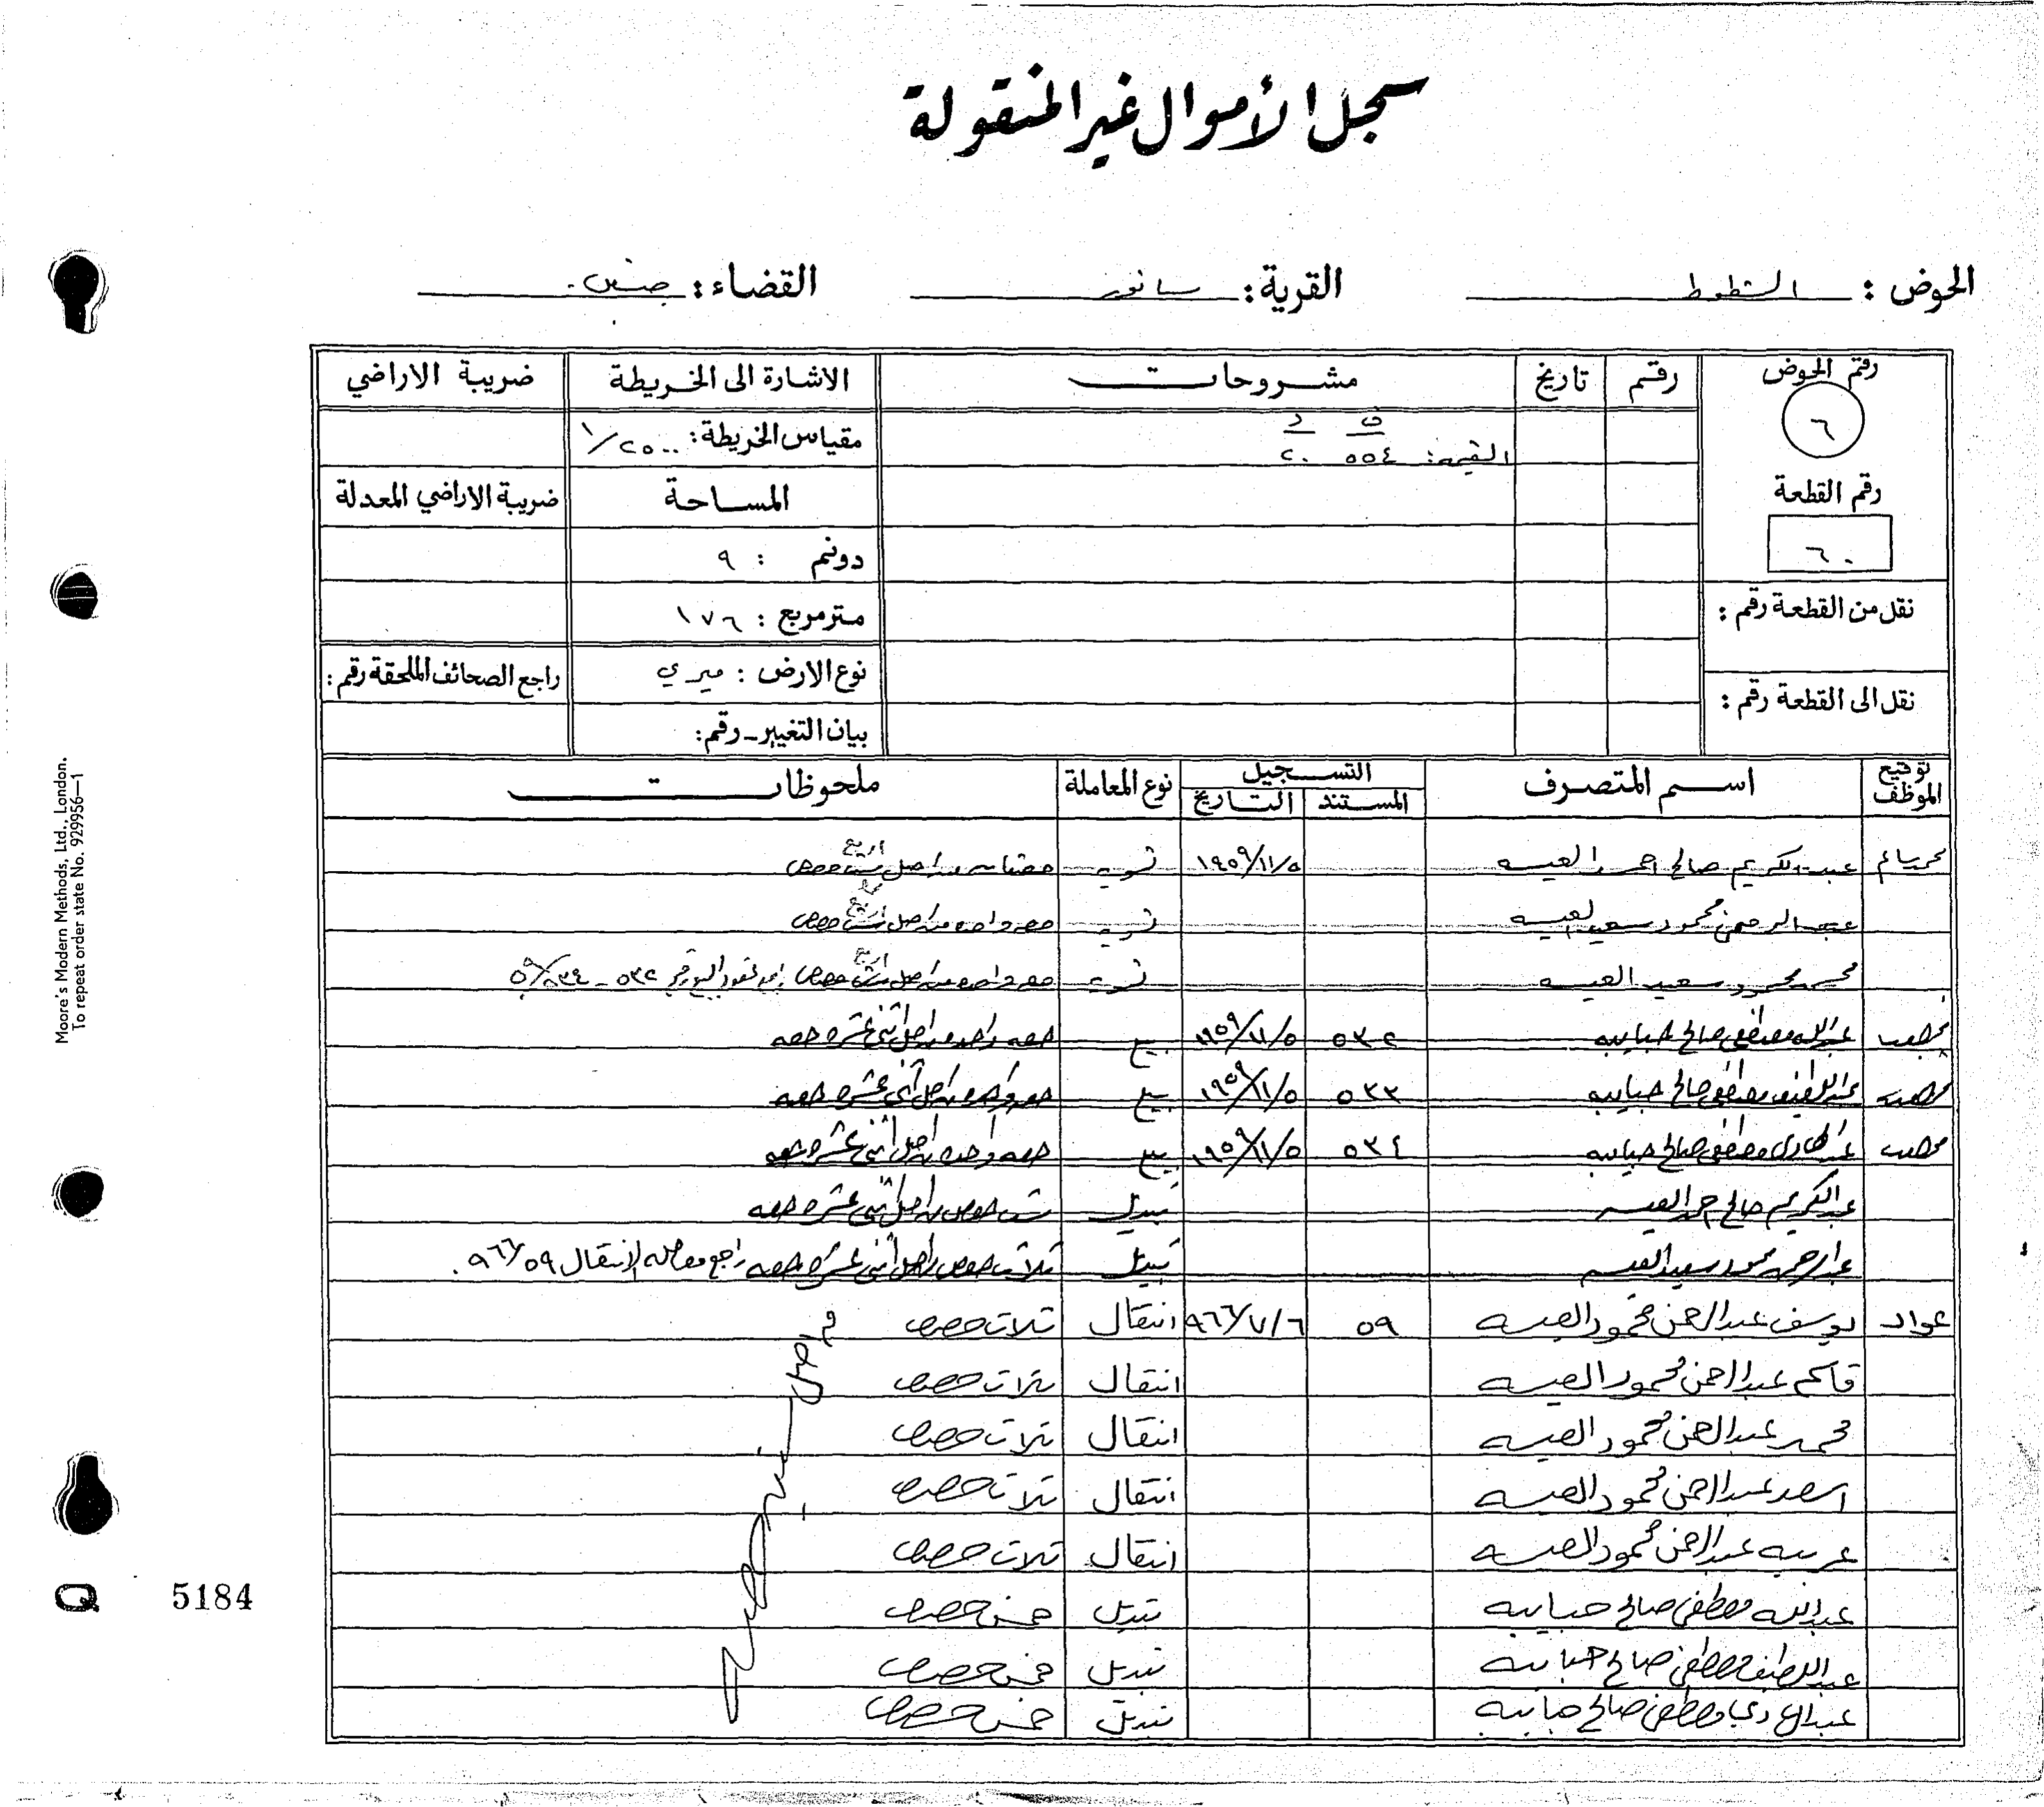 سجل الأموال غير المنقولة
الحوض : الشطوط القرية : سانور القضاء : جنين
رقم الحوض رقم تاريخ مشروحات الاشارة الى الخريطة ضريبة الاراضي
٦
ف د
القيمة : ٥٥٤ ٢٠
مقياس الخريطة : ١/٢٥٠٠
رقم القطعة المساحة ضريبة الاراضي المعدلة
٦٠
دونم : ٩
نقل من القطعة رقم : متر مربع : ١٧٦
نقل الى القطعة رقم : نوع الارض : ميري راجع الصحائف الملحقة رقم :
بيان التغيير - رقم :
توقيع الموظف اسم المتصرف التسجيل نوع المعاملة ملحوظات
المستند التاريخ
عبد الكريم صالح احمد العيسه ١٩٥٩/١١/٥ تسويه حصتان من اصل اربع حصص
عبد الرحمن محمود سعيد العيسه تسويه حصه واحده من اصل اربع حصص
محمد محمود سعيد العيسه تسويه حصه واحده من اصل اربع حصص ٥٣٢ - ٥٣٤/٥٩
عبد الله مصطفى صالح حبايبه ٥٣٢ ١٩٥٩/١١/٥ بيع حصه واحده من اصل اثنى عشره حصه
عبد اللطيف مصطفى صالح حبايبه ٥٣٣ ١٩٥٩/١١/٥ بيع حصه واحده من اصل اثنى عشره حصه
عبد الهادي مصطفى صالح حبايبه ٥٣٤ ١٩٥٩/١١/٥ بيع حصه واحده من اصل اثنى عشره حصه
عبد الكريم صالح احمد العيسه تبديل ست حصص من اصل اثنى عشره حصه
عبد الرحمن محمود سعيد العيسه تبديل ثلاث حصص من اصل اثنى عشره حصه راجع معامله الانتقال ٩٦٦/٥٩ .
عواد يوسف عبد الرحمن محمود العيسه ٥٩ ٩٦٦/٧/٦ انتقال ثلاث حصص
قاسم عبد الرحمن محمود العيسه انتقال ثلاث حصص
محمد عبد الرحمن محمود العيسه انتقال ثلاث حصص
اسعد عبد الرحمن محمود العيسه انتقال ثلاث حصص
عربيه عبد الرحمن محمود العيسه انتقال ثلاث حصص
عبد الله مصطفى صالح حبايبه تبديل خمس حصص
عبد اللطيف مصطفى صالح حبايبه تبديل خمس حصص
عبد الهادي مصطفى صالح حبايبه تبديل خمس حصص
من اصل ستين حصه
Moore's Modern Methods, Ltd., London.
To repeat order state No. 929956—1
Q 5184